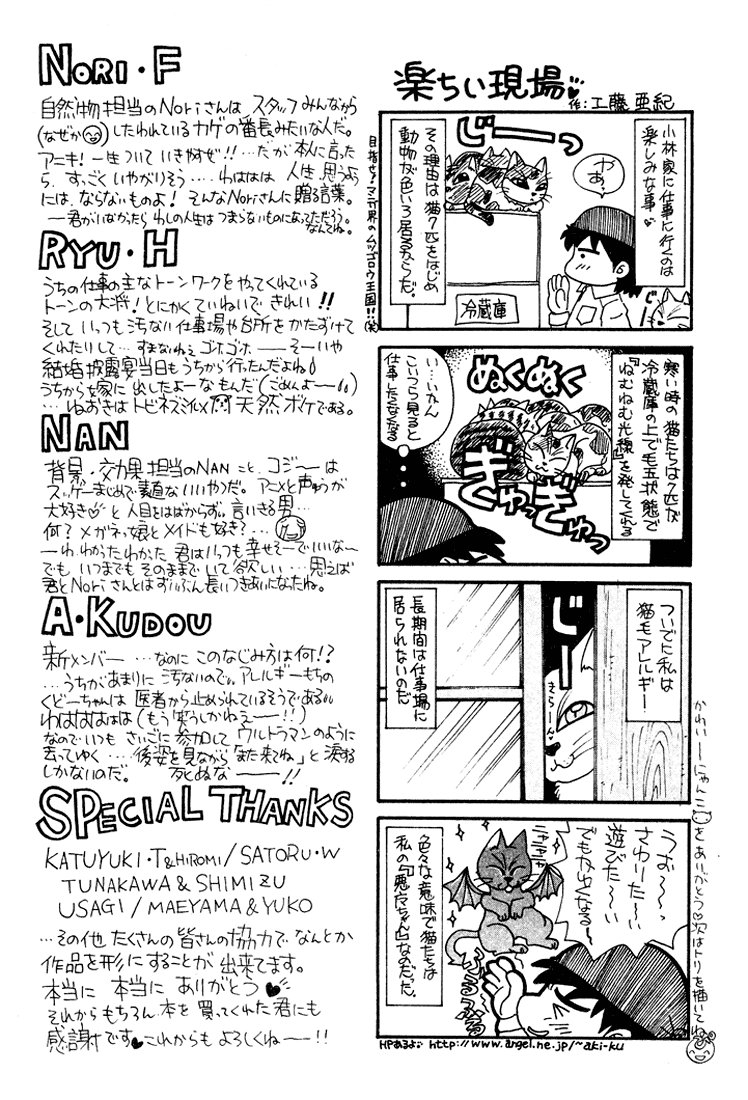 NORI・F
自然物担当のNoriさんは スタッフみんなから
(なぜか)したわれているカゲの番長みたいな人だ。
アニキ!一生ついていきやすぜ!!…だが本人に言った
ら、すっごくいやがりそう…‥わははは 人生、思うよう
には、ならないものよ! そんなNoriさんに贈る言葉。
―君がいなかったら わしの人生は つまらないものになってただろう。
なんてね。
RYU・H
うちの仕事の主なトーンワークをやってくれている
トーンの大将!とにかくていねいで きれい!!
そして いっつも 汚ない仕事場や台所をかたずけて
くれたりして…すまないねぇ ゴホゴホ ――そーいや
結婚披露宴当日もうちから行ったんだよね
うちから嫁に出したよーなもんだ(ごめんよ――)
…ねおきは トビネズミ似× 天然ボケである。
NAN
背景・効果担当のNANこと、コジ〜は
スッゲーまじめで素直ないいやつだ。アニメと声ゆうが
大好き と 人目をはばからず。言いきる男…
何?メガネっ娘とメイドも好き?…
―わ、わかったわかった 君はいっつも幸せそーでいいな〜
でも いつまでも そのままでいて欲しい…思えば
君とNoriさんとはずいぶん長いつきあいになったね。
A・KUDOU
新メンバー…なのに このなじみ方は何!?
…うちがあまりに汚ないので。アレルギーもちの
くどーちゃんは 医者から止められているそうである
わはははははは(もう笑うしかねぇ――!!)
なので いつも さいごに 参加して ウルトラマンのように
去ってゆく…‥後姿を見ながら「また来てね」と涙する
しかないのだ。 死ぬな――!!
SPECIAL THANKS
KATUYUKI・T&HIROMI/SATORU・W
TUNAKAWA&SHIMIZU
USAGI/MAEYAMA&YUKO
…その他 たくさんの皆さんの協力で なんとか
作品を形にすることが 出来てます。
本当に 本当に ありがとう
それから もちろん 本を買ってくれた君にも
感謝です これからも よろしくね――!!
楽ちい現場
作:工藤 亜紀
小林家に仕事に行くのは
楽しみな事
やあっ
じーーっ
その理由は猫7匹をはじめ
動物が色いろ居るからだ。
冷蔵庫
じーっ
目指せ!マンガ界のムツゴロウ王国!!(笑)
寒い時の猫たちは7匹が
冷蔵庫の上で毛玉状態で
『ねむねむ光線』を発してくれる
ぬくぬく
ぎゅっぎゅっ
い…いかん
こいつら見ると
仕事したくなくなる
ついでに私は
猫毛アレルギー
じー
きらーん
長期間は仕事場に
居られないのだ
うお〜〜っ
さわりた〜い
遊びた〜い
でもかゆくなる〜
色々な意味で猫たちは
私の『悪魔ちゃん』なのだ。
ふるふる
かわいーにゃんこをありがとう 次はトリを描いてね
HPあるよ http://www.angel.ne.jp/~aki-ku